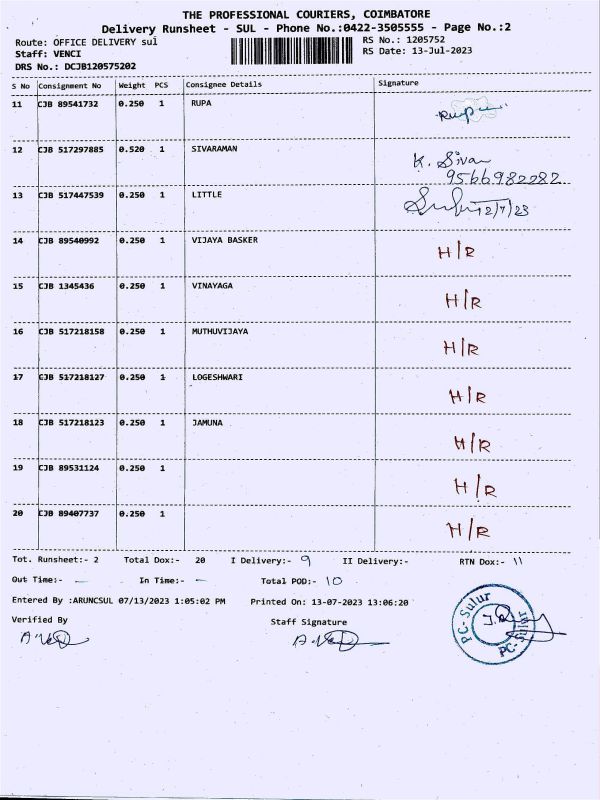 THE PROFESSIONAL COURIERS, COIMBATORE
Delivery Runsheet - SUL - Phone No.:0422-3505555 - Page No.:2
Route: OFFICE DELIVERY sul RS No.: 1205752
Staff: VENCI RS Date: 13-Jul-2023
DRS No.: DCJB120575202
S No Consignment No Weight PCS Consignee Details Signature
11 CJB 89541732 0.250 1 RUPA Rupa
12 CJB 517297885 0.520 1 SIVARAMAN K. Sivan
9566982282
13 CJB 517447539 0.250 1 LITTLE 12/7/23
14 CJB 89540992 0.250 1 VIJAYA BASKER H/R
15 CJB 1345436 0.250 1 VINAYAGA H/R
16 CJB 517218158 0.250 1 MUTHUVIJAYA H/R
17 CJB 517218127 0.250 1 LOGESHWARI H/R
18 CJB 517218123 0.250 1 JAMUNA H/R
19 CJB 89531124 0.250 1 H/R
20 CJB 89407737 0.250 1 H/R
Tot. Runsheet:- 2 Total Dox:- 20 I Delivery:- 9 II Delivery:- RTN Dox:- 11
Out Time:- — In Time:- — Total POD:- 10
Entered By :ARUNCSUL 07/13/2023 1:05:02 PM Printed On: 13-07-2023 13:06:20
Verified By Staff Signature
PC-Sulur
PC-Sulur